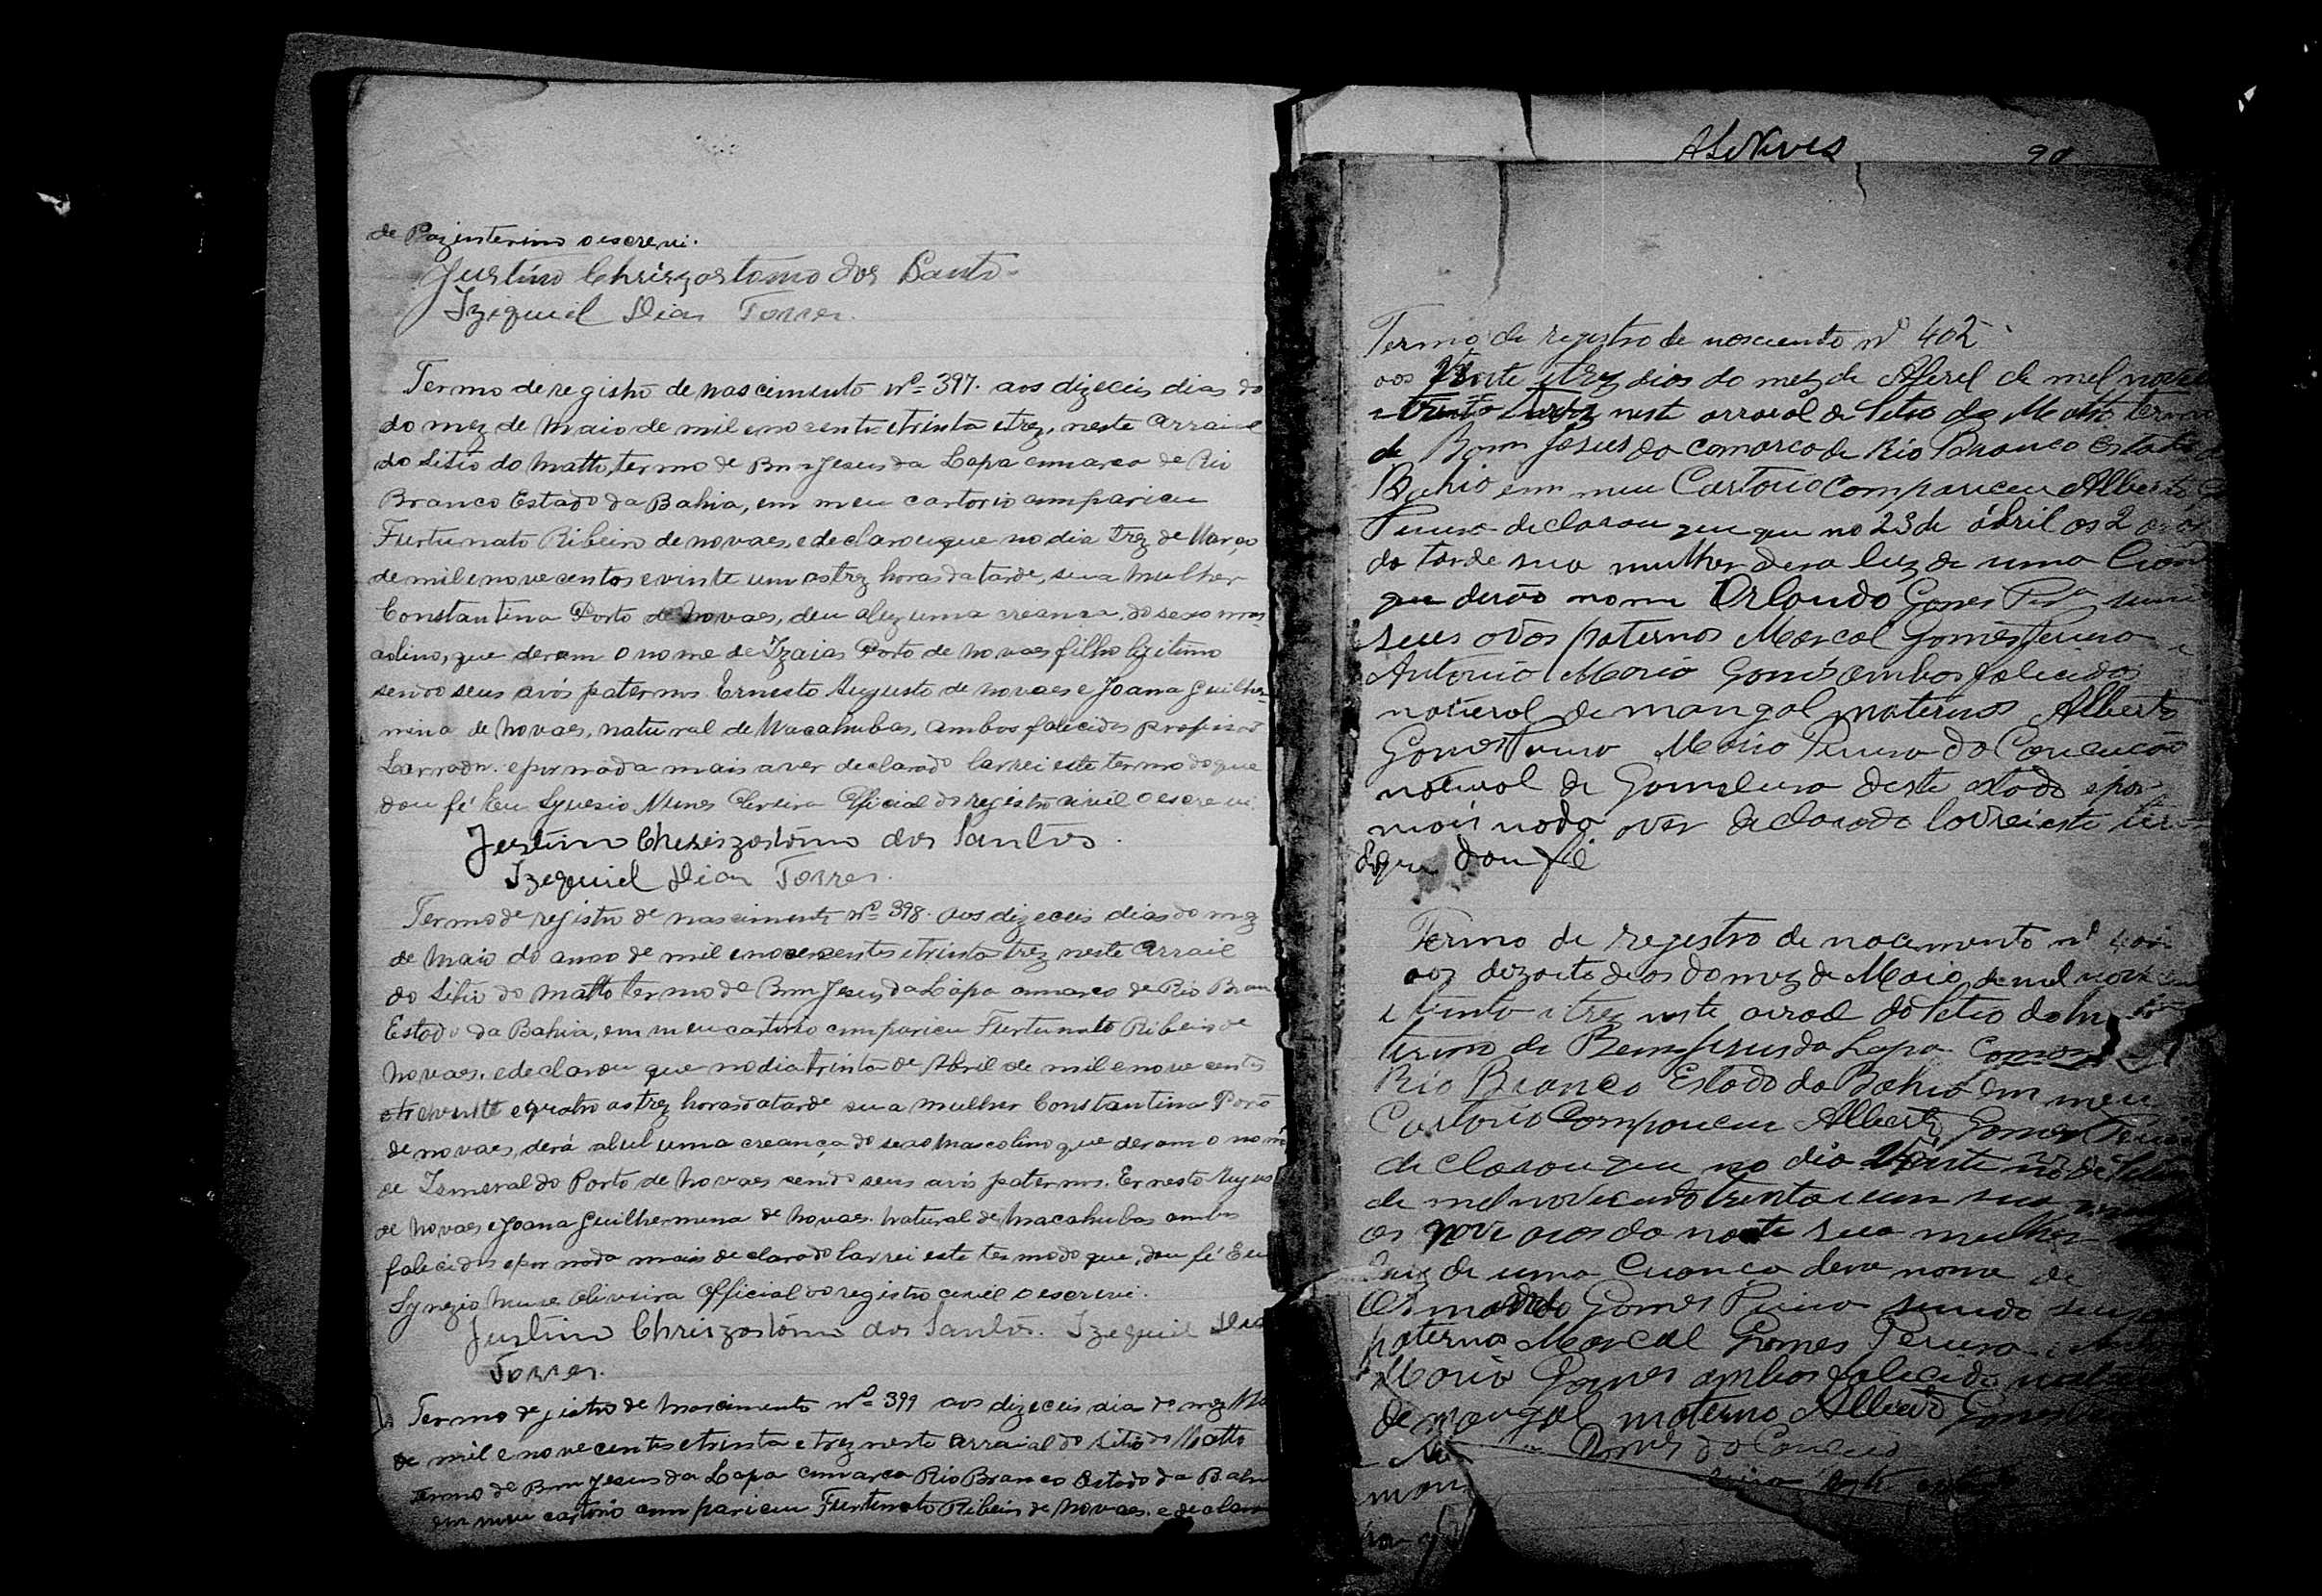 de Paz enterino o escrevi.
Justino Chrizostomo dos Santos
Izequiel Dias Torres.
Termo de registro de nascimento Nº 397. aos dizeceis dias do
do mez de Maio de mil e nocentos e trinta e trez, neste Arraial
do Sitio do Matto, termo de Bom Jesus da Lapa comarca de Rio
Branco Estado da Bahia, em meu cartorio compariceu
Furtunato Ribeiro de novaes, e declarou que no dia trez de Março
de mil e novecentos e vinte um as trez horas da tarde, sua mulher
Constantina Porto de Novaes, deu a luz uma creança, do sexo mas-
colino, que deram o nome de Izaias Porto de Novaes filho ligitimo
sendo seus avós paternos Ernesto Augusto de Novaes e Joana Guilher-
mina de Novaes, natural de Macahubas, ambos falecidos profissão
Lavrador. e por nada mais aver declarado larvei este termo do que
dou fé Eu Synesio Nunes Oliveira Official do registro civil o escrevi
Justino Chrizostomo dos Santos.
Izequiel Dias Torres.
Termo de registro de nascimento Nº 398. aos dizeceis dias do mez
de Maio do anno de mil e novecentos e trinta trez neste Arraial
do Sitio do Matto termo de Bom Jesus da Lapa comarca de Rio Bran
Estado da Bahia, em meu cartorio compariceu Furtunato Ribeiro de
Novaes. e declarou que no dia trinta de Abril de mil e nove centos
e vinte e quatro as trez horas da tarde sua mulher Constantina Porto
de novaes, derá a luz uma creança do sexo mascolino que deram o nome
de Ismeraldo Porto de Novaes sendo seus avós paternos. Ernesto Augus
de Novaes e Joana Guilhermina de Novaes. natural de Macahubas ambos
falecidos e por nada mais declarado larvei este termo do que, dou fé Eu
Synezio Nunes Oliveira Official do registro civil o escrevi.
Justino Chrizostomo dos Santos. Izequiel Dias
Torres.
Termo de jistro de Nascimento Nº 399 aos dizeceis dia do mez Ma
de mil e novecentos e trinta e trez neste Arraial do Sitio do Matto
termo de Bom Jesus da Lapa comarca Rio Branco Estado da Bahia
em meu cartorio compariceu Furtunato Ribeiro de Novaes. e declarou
90
Termo de registro de nascuento nº 402
aos Vinte e trez dios do mez de Aferel de mel nove
e trinta e trez neste arraial de Sitio do Matto termo
de Bom Jesus da comarca de Rio Branco Estado
Bahia em meu Cartorio Compareceu Alberto
Pereira declarou que que no 23 de ábril os 2 oros
da tarde sua mulher dera luz de uma Crian
que derão nome Orlando Gomes Pra sendo
seus ovos paternos Marcal Gomes Pereira e
Antonio Maria Gomes ambos falicidos
natural de mangal maternos Alberto
Gomes Pereira Maria Pereira da Conceicão
natural de Gameleira deste estado e por
mais nada aver declarado lavrei este ter
do que dou fé
Termo de registro de nacemento nº
aos dezoito deos do mez de Maio de mel nove
e trinta e trez neste arraal do Setio do M
termo de Bem Jesus da Lapa Comar
Rio Branco Estado da Bahia em meu
Cartorio Compareceu Alberto Gomes Pereira
declarou que no dia Vinte
de mel novecento trinta e um sua
os nove oros da noite sua mulher
luz de uma Crianca deva nome de
Gomes Pereira sendo seus
paternos Marcal Gomes Pereira e
Maria Gomes ambos falecido
de mangal materno Alberto Gomes
Gomes da Conceicão